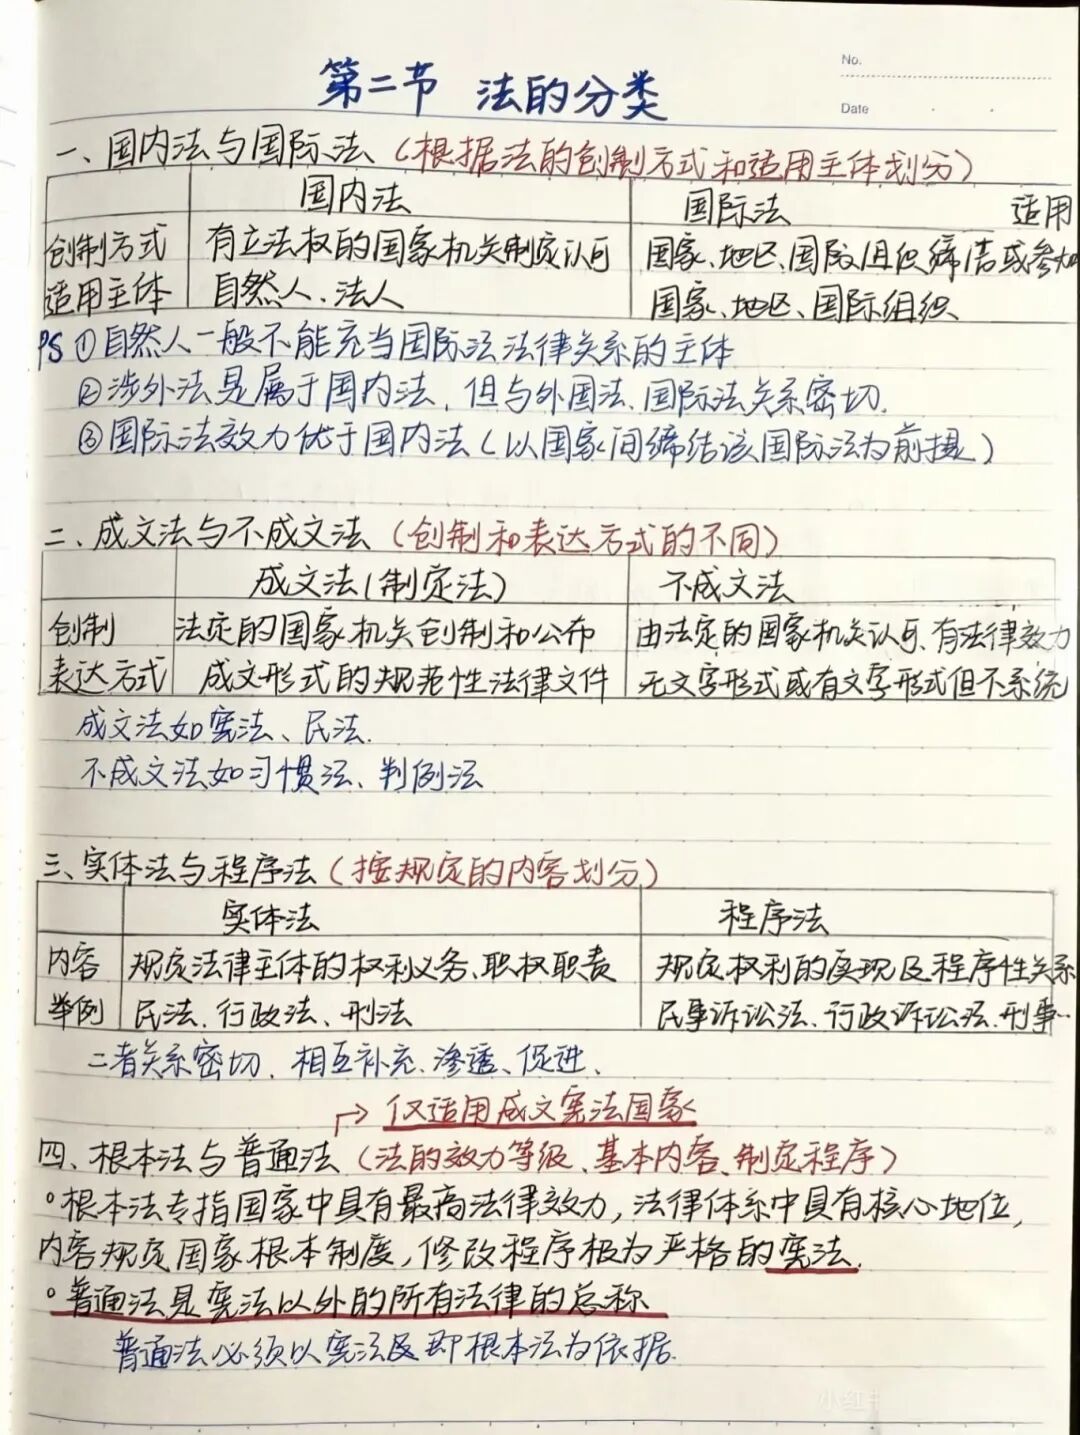 No.
Date
第二节 法的分类
一、国内法与国际法（根据法的创制方式和适用主体划分）
国内法 国际法 适用
创制方式 有立法权的国家机关制定认可 国家、地区、国际组织缔结或参加
适用主体 自然人、法人 国家、地区、国际组织
PS ①自然人一般不能充当国际法法律关系的主体
②涉外法是属于国内法，但与外国法、国际法关系密切.
③国际法效力优于国内法（以国家间缔结该国际法为前提）
二、成文法与不成文法（创制和表达方式的不同）
成文法（制定法） 不成文法
创制 法定的国家机关创制和公布 由法定的国家机关认可、有法律效力
表达方式 成文形式的规范性法律文件 无文字形式或有文字形式但不系统
成文法如宪法、民法.
不成文法如习惯法、判例法
三、实体法与程序法（按规定的内容划分）
实体法 程序法
内容 规定法律主体的权利义务、职权职责 规定权利的实现及程序性关系
举例 民法、行政法、刑法 民事诉讼法、行政诉讼法、刑事…
二者关系密切，相互补充、渗透、促进、
→仅适用成文宪法国家
四、根本法与普通法（法的效力等级、基本内容、制定程序）
°根本法专指国家中具有最高法律效力，法律体系中具有核心地位，
内容规定国家根本制度，修改程序极为严格的宪法.
°普通法是宪法以外的所有法律的总称
普通法必须以宪法及即根本法为依据.